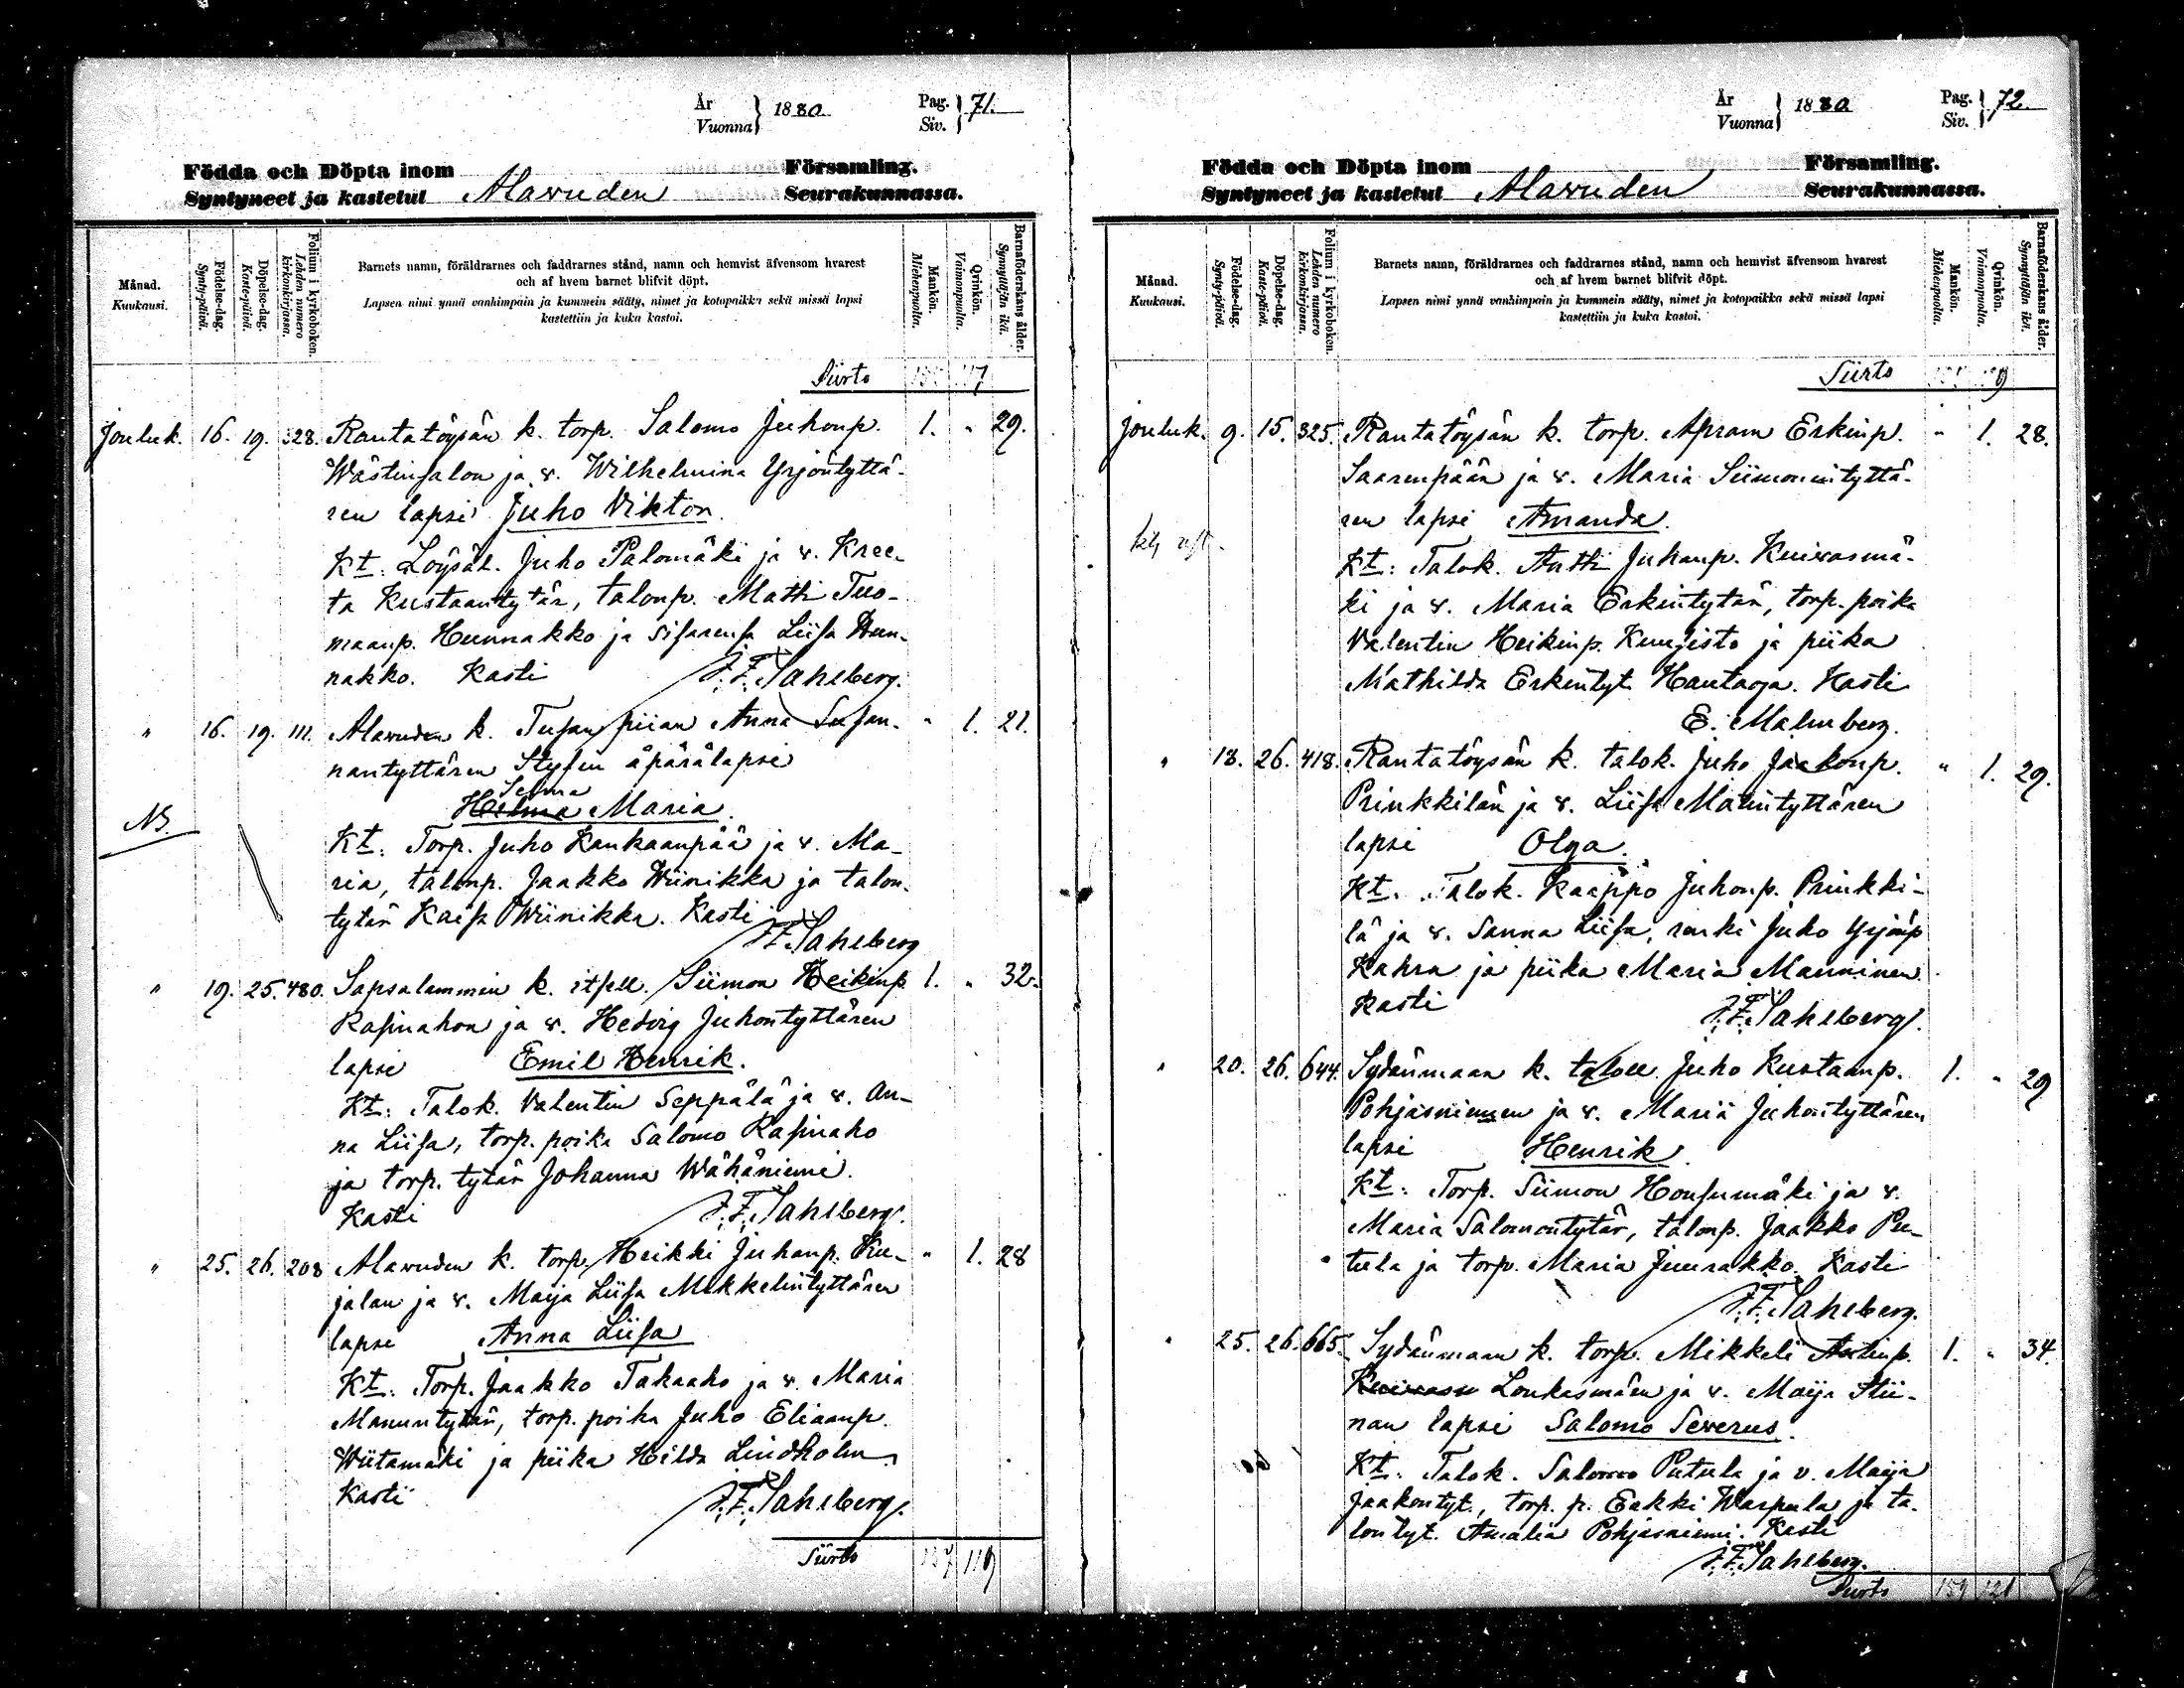 År
Vuonna } 1880. Pag.
Siv. } 71.
Födda och Döpta inom Församling.
Syntyneet ja kastetut Alavuden Seurakunnassa.
Månad.
Kuukausi.
Födelse-dag.
Synty-päivä.
Döpelse-dag.
Kaste-päivä.
Folium i kyrkoboken.
Lehden numero kirkonkirjassa.
Barnets namn, föräldrarnes och faddrarnes stånd, namn och hemvist äfvensom hvarest
och af hvem barnet blifvit döpt.
Lapsen nimi ynnä vanhimpain ja kummein sääty, nimet ja kotopaikka sekä missä lapsi
kastettiin ja kuka kastoi.
Mankön.
Miehenpuolta.
Qvinkön.
Vaimonpuolta.
Barnaföderskans ålder.
Synnyttäjän ikä.
Siirto 117
Jouluk. 16. 19. 328. Rantatöysän k. torp. Salomo Juhonp. 1. „ 29.
Wästinsalon ja v. Wilhelmina Yrjöntyttä-
ren lapsi Juho Viktor.
Kt: Löysäl. Juho Palomäki ja v. Kree-
ta Kustaantytär, talonp. Matti Tuo-
maanp. Hunnakko ja sisarensa Liisa Hun-
nakko. Kasti J. F. Sahlberg.
„ 16. 19. 111. Alavuden k. Tusan piian Anna Susan- „ 1. 21.
nantyttären äpärälapsi
Selma
Helma Maria.
NB.
Kt: Torp. Juho Kankaanpää ja v. Ma-
ria, talonp. Jaakko Wiinikka ja talon-
tytär Kaisa Wiinikka. Kasti
J. F. Sahlberg
„ 19. 25. 480. Sapsalammin k. itsell. Siimon Heikinp. 1. „ 32.
Rasinahon ja v. Hedvig Juhontyttären
lapsi Emil Henrik.
Kt: Talok. Valentin Seppälä ja v. An-
na Liisa, torp. poika Salomo Rasinaho
ja torp. tytär Johanna Wähäniemi.
Kasti J. F. Sahlberg.
„ 25. 26. 208 Alavuden k. torp. Heikki Juhanp. Ku- „ 1. 28
jalan ja v. Maija Liisa Mikkelintyttären
lapsi Anna Liisa
Kt: Torp. Jaakko Takaaho ja v. Maria
Manuntytär, torp. poika Juho Eliaanp.
Wiitamäki ja piika Hilda Lindholm
Kasti J. F. Sahlberg.
Siirto 157 119
År
Vuonna } 1880 Pag.
Siv. } 72.
Födda och Döpta inom Församling.
Syntyneet ja kastetut Alavuden Seurakunnassa.
Månad.
Kuukausi.
Födelse-dag.
Synty-päivä.
Döpelse-dag.
Kaste-päivä.
Folium i kyrkoboken.
Lehden numero kirkonkirjassa.
Barnets namn, föräldrarnes och faddrarnes stånd, namn och hemvist äfvensom hvarest
och af hvem barnet blifvit döpt.
Lapsen nimi ynnä vanhimpain ja kummein sääty, nimet ja kotopaikka sekä missä lapsi
kastettiin ja kuka kastoi.
Mankön.
Miehenpuolta.
Qvinkön.
Vaimonpuolta.
Barnaföderskans ålder.
Synnyttäjän ikä.
Siirto
Jouluk. 9. 15. 325. Rantatöysän k. torp. Apram Erkinp. „ 1. 28.
Saarenpään ja v. Maria Siimonintyttä-
ren lapsi Amanda.
Kt: Talok. Antti Juhanp. Kuivasmä-
ki ja v. Maria Erkintytär, torp. poika
Valentin Heikinp. Kuusisto ja piika
Mathilda Erkintyt. Hautaoja. Kasti
E. Malmberg.
„ 18. 26. 418. Rantatöysän k. talok. Juho Jaakonp. „ 1. 29.
Prinkkilän ja v. Liisa Matintyttären
lapsi Olga.
Kt. Talok. Kaappo Juhonp. Prinkki-
lä ja v. Sanna Liisa, renki Juho Yrjönp
Kahra ja piika Maria Manninen.
Kasti J. F. Sahlberg.
„ 20. 26. 644. Sydänmaan k. Juho Kustaanp. 1. „ 29
Pohjasniemen ja v. Maria Juhontyttären
lapsi Henrik.
Kt: Torp. Siimon Honsumäki ja v.
Maria Salomontytär, talonp. Jaakko Pu-
tula ja torp. Maria Juurakko. Kasti
J. F. Sahlberg.
„ 25. 26. 665. Sydänmaan k. torp. Mikkeli Antinp. 1. „ 34.
Kuivasm Loukasmäen ja v. Maija Stii-
nan lapsi Salomo Severus.
Kt: Talok. Salomo Putula ja v. Maija
Jaakontyt., torp. p. Erkki Warpula ja ta-
lontyt. Amalia Pohjasniemi. Kasti
J. F. Sahlberg.
Siirto 159 121